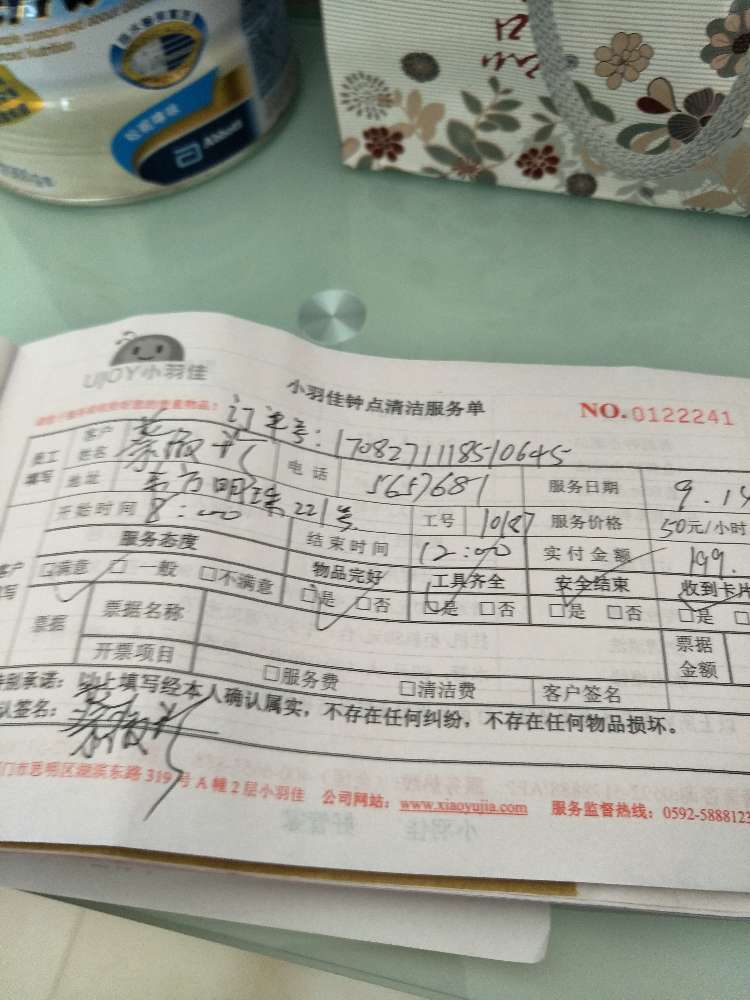 Abbott
UJOY小羽佳
小羽佳钟点清洁服务单
NO.0122241
订单号：170827111851 0645
员工填写
客户姓名
电话
5657681
服务日期
9.14
地址
东方明珠221号
工号
10187
服务价格
50元/小时
开始时间
8:00
结束时间
12:00
实付金额
199.
服务态度
物品完好
工具齐全
安全结束
收到卡片
☐满意 ☐一般 ☐不满意
☐是 ☐否
☐是 ☐否
☐是 ☐否
☐是
票据
票据名称
票据金额
开票项目
☐服务费 ☐清洁费
客户签名
特别承诺：以上填写经本人确认属实，不存在任何纠纷，不存在任何物品损坏。
认签名：
门市思明区湖滨东路319号A幢2层小羽佳 公司网站：www.xiaoyujia.com 服务监督热线：0592-5888123